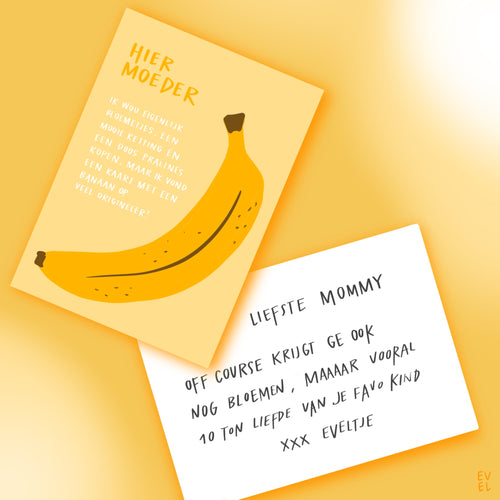 HIER
MOEDER
IK WOU EIGENLIJK
BLOEMETJES, EEN
MOOIE KETTING EN
EEN DOOS PRALINES
KOPEN, MAAR IK VOND
EEN KAART MET EEN
BANAAN OP
VEEL ORIGINELER!
LIEFSTE MOMMY
OFF COURSE KRIJGT GE OOK
NOG BLOEMEN, MAAAR VOORAL
10 TON LIEFDE VAN JE FAVO KIND
XXX EVELTJE
EV
EL